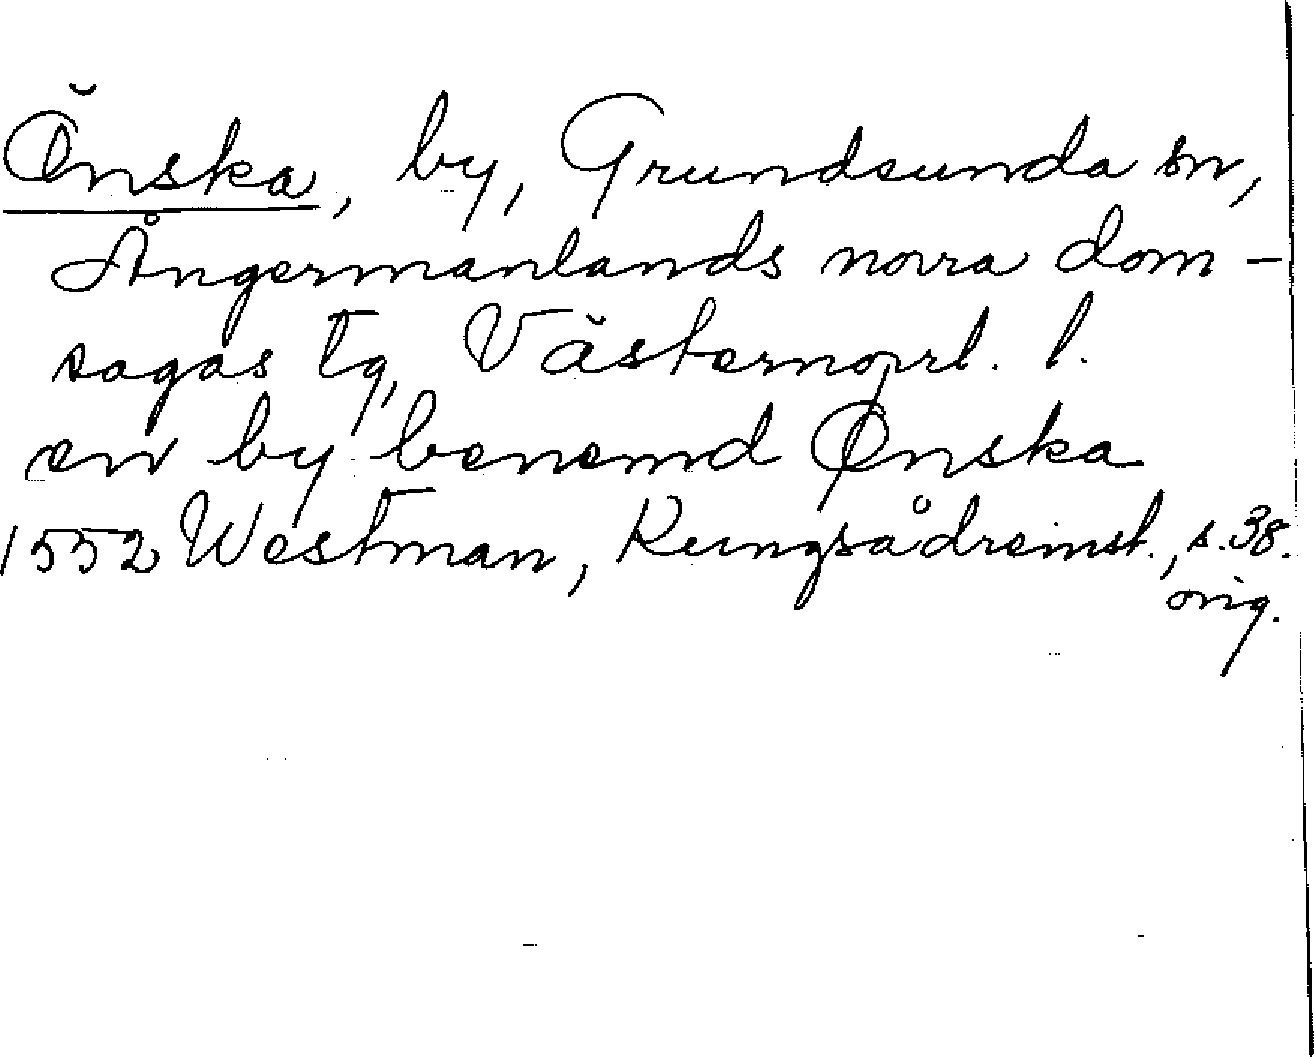 Önska, by, Grundsunda sn,
Ångermanlands norra dom-
sagas tg, Västernorrl. l.
en by benemd Ønska
1552 Westman, Kungsådreinst., s. 38.
orig.